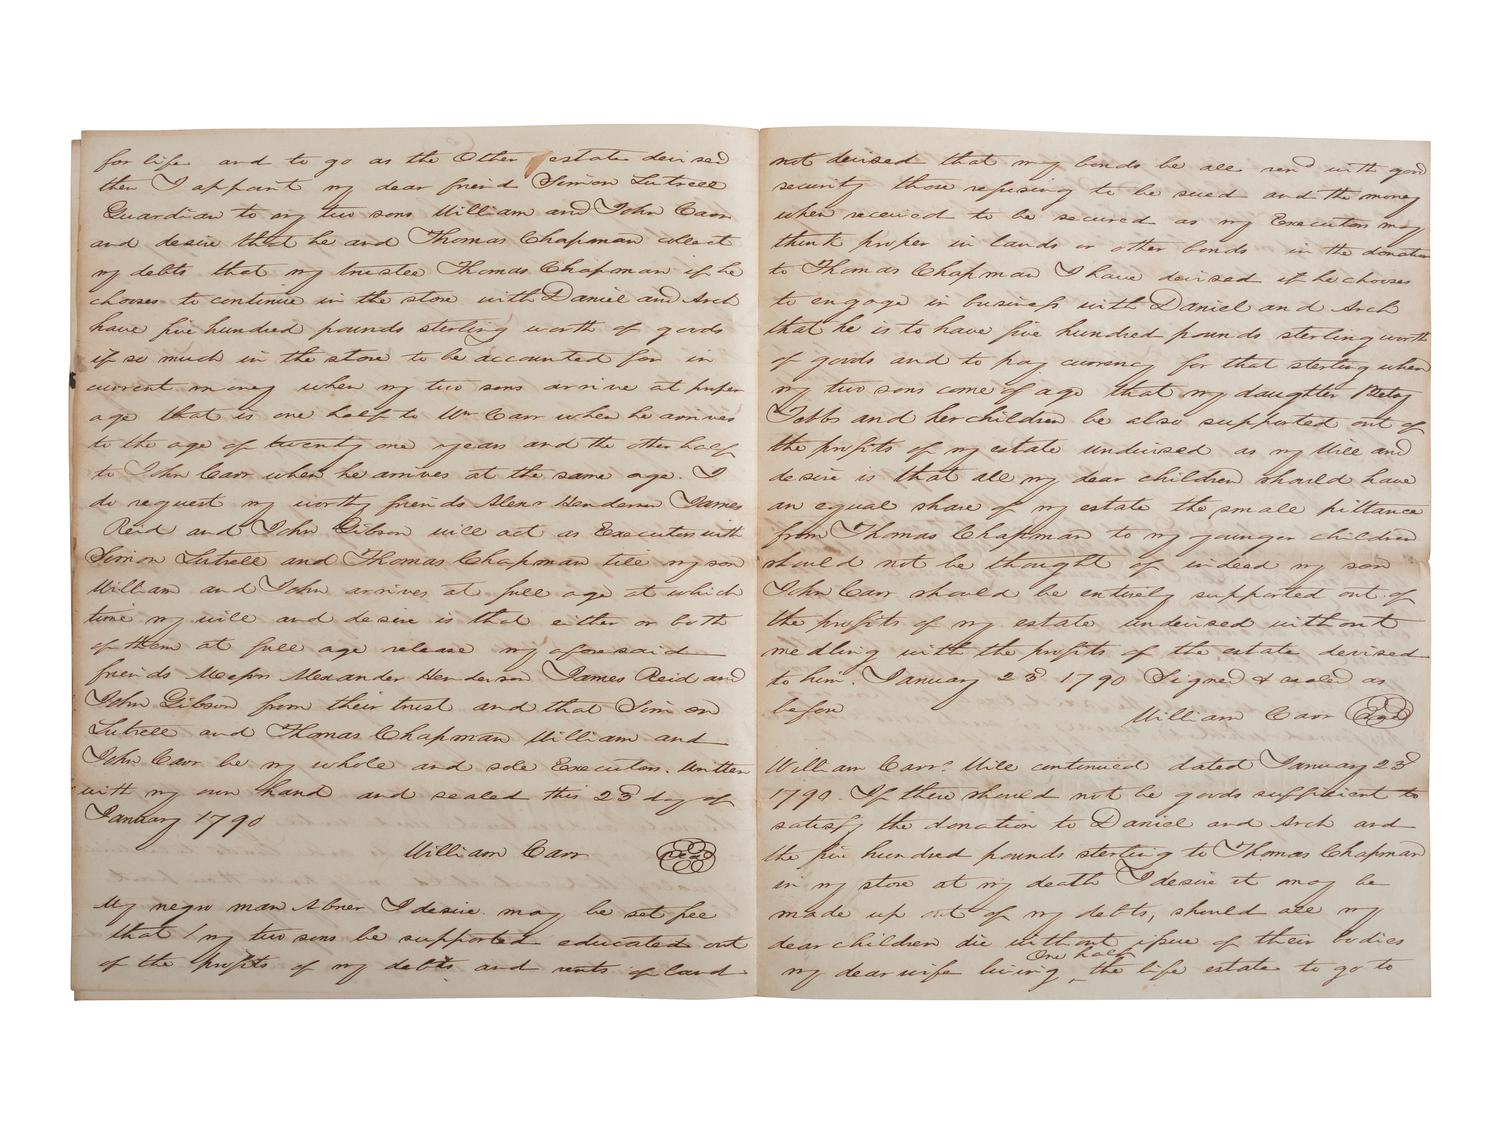 for life and to go as the Other estate devised
then I appoint my dear friend Simon Lutrell
Guardian to my two sons William and John Carr
and desire that he and Thomas Chapman collect
my debts that my trustee Thomas Chapman if he
chooses to continue in the store with Daniel and Arch
have five hundred pounds sterling worth of goods
if so much in the store to be accounted for in
current money when my two sons arrive at proper
age that is one half to Wm Carr when he arrives
to the age of twenty one years and the other half
to John Carr when he arrives at the same age. I
do request my worthy friends Alexr Henderson James
Reid and John Gibson will act as Executors with
Simon Lutrell and Thomas Chapman till my son
William and John arrives at full age at which
time my will and desire is that either or both
of them at full age release my aforesaid
friends Messrs Alexander Henderson James Reid and
John Gibson from their trust and that Simon
Lutrell and Thomas Chapman William and
John Carr be my whole and sole Executors. Written
with my own hand and sealed this 23d day of
January 1790
William Carr
My negro man Abner I desire may be set free
that my two sons be supported educated out
of the profits of my debts and rents of land
not devised that my bonds be all rend with good
security those refusing to be sued and the money
when received to be secured as my Executors may
think proper in lands or other bonds in the donation
to Thomas Chapman I have devised if he chooses
to engage in business with Daniel and Arch
that he is to have five hundred pounds sterling worth
of goods and to pay currency for that sterling when
my two sons come of age that my daughter Betsy
Tebbs and her children be also supported out of
the profits of my estate undevised as my Will and
desire is that all my dear children should have
an equal share of my estate the small pittance
from Thomas Chapman to my younger children
should not be thought of indeed my son
John Carr should be entirely supported out of
the profits of my estate undevised without
medling with the profits of the estate devised
to him. January 23d 1790 Signed & sealed as
before
William Carr
William Carrs Will continued dated January 23d
1790. If there should not be goods sufficient to
satisfy the donation to Daniel and Arch and
the five hundred pounds sterling to Thomas Chapman
in my store at my death I desire it may be
made up out of my debts, should all my
dear children die without issue of their bodies
One half
my dear wife living the life estate to go to